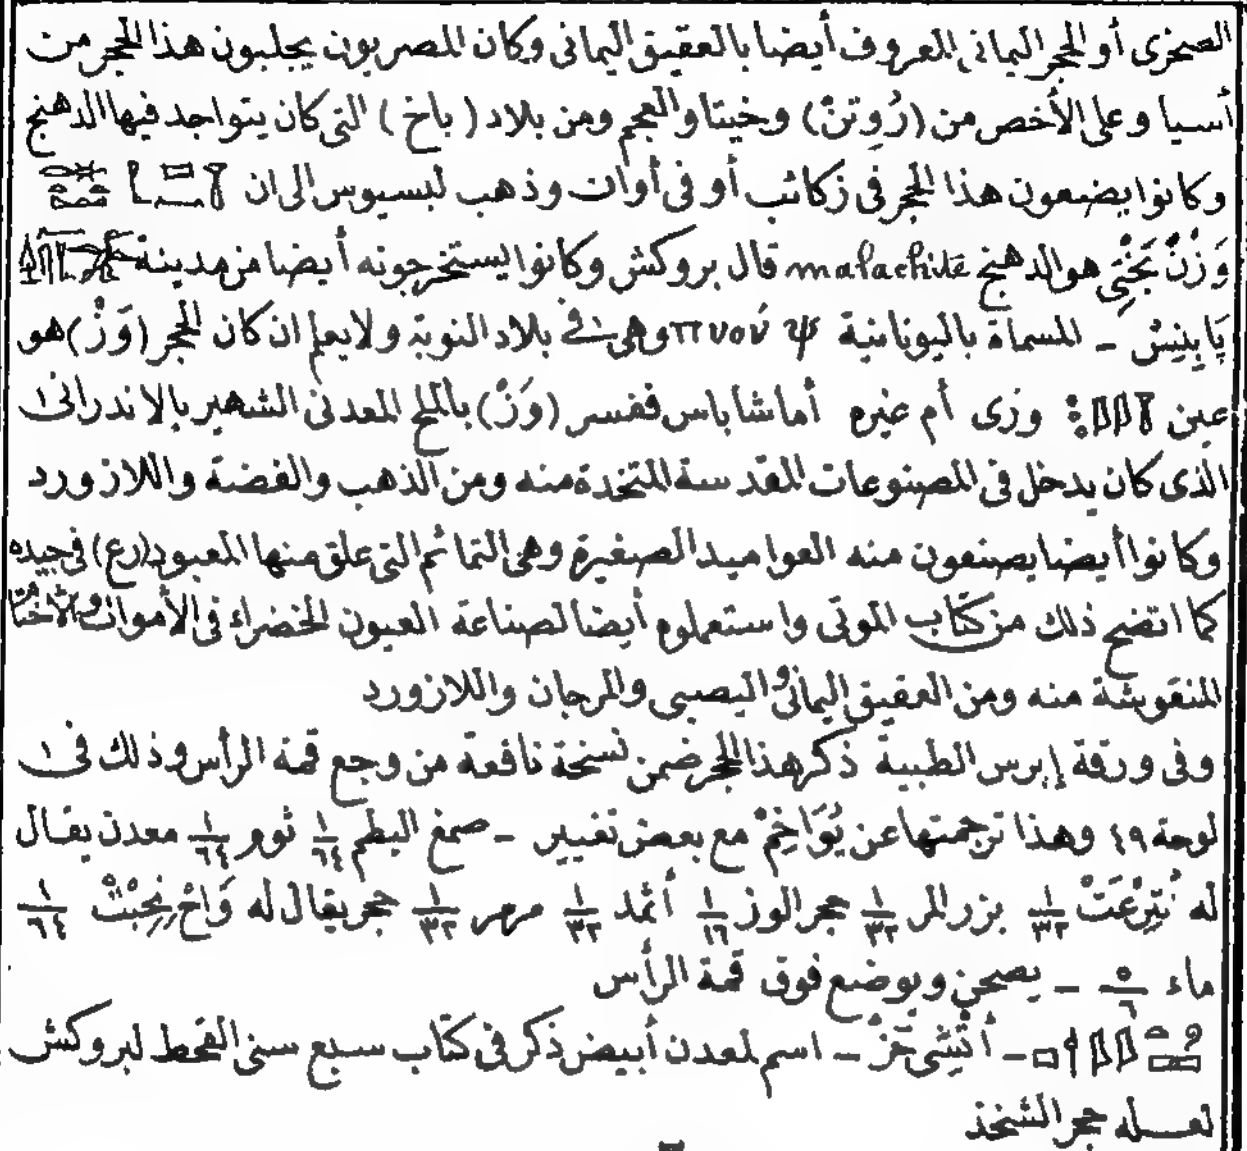 الصخرى أو الحجر اليمانى المعروف أيضا بالعقيق اليمانى وكان المصريون يجلبون هذا الحجر من
أسيا وعلى الأخص من (رُوتِنْ) وخيتا والعجم ومن بلاد (باخ) التى كان يتواجد فيها الدهنج
وكانوا يضعون هذا الحجر فى زكائب أو فى أوات وذهب لبسيوس الى ان
وَزْنْ هو الدهنج malachite قال بروكش وكانوا يستخرجونه أيضا من مدينة
المسماة باليونانية وهى فى بلاد النوبة ولا يعلم ان كان الحجر (وَزْ) هو
عين وزى أم غيره أما شاباس ففسر (وَزْ) بالملح المعدنى الشهير بالاندرانى
الذى كان يدخل فى المصنوعات المقدسة المتخذة منه ومن الذهب والفضة واللازورد
وكانوا أيضا يصنعون منه العواميد الصغيرة وهى التمائم التى علق منها المعبود (رع) فى جيده
كما اتضح ذلك من كتاب الموتى واستعملوه أيضا لصناعة العيون الخضراء فى الأموات
المنقوشة منه ومن العقيق اليمانى واليصبى والمرجان واللازورد
وفى ورقة إبرس الطبية ذكر هذا الحجر ضمن نسخة نافعة من وجع قمة الرأس وذلك فى
لوحة ٤٩ وهذا ترجمتها عن يُوَاخِمْ مع بعض تغيير - صمغ البطم ١/٦٤ ثوم ١/٦٤ معدن يقال
له ١/٣٢ بزر المر ١/٣٢ حجر الوز ١/١٦ أثمد ١/٣٢ مرمر ١/٣٢ حجر يقال له ١/٦٤
ماء ٥/٦ - يصحن ويوضع فوق قمة الرأس
- اسم لمعدن أبيض ذكر فى كتاب سبع سنى القحط لبروكش
لعله حجر الشنخذ